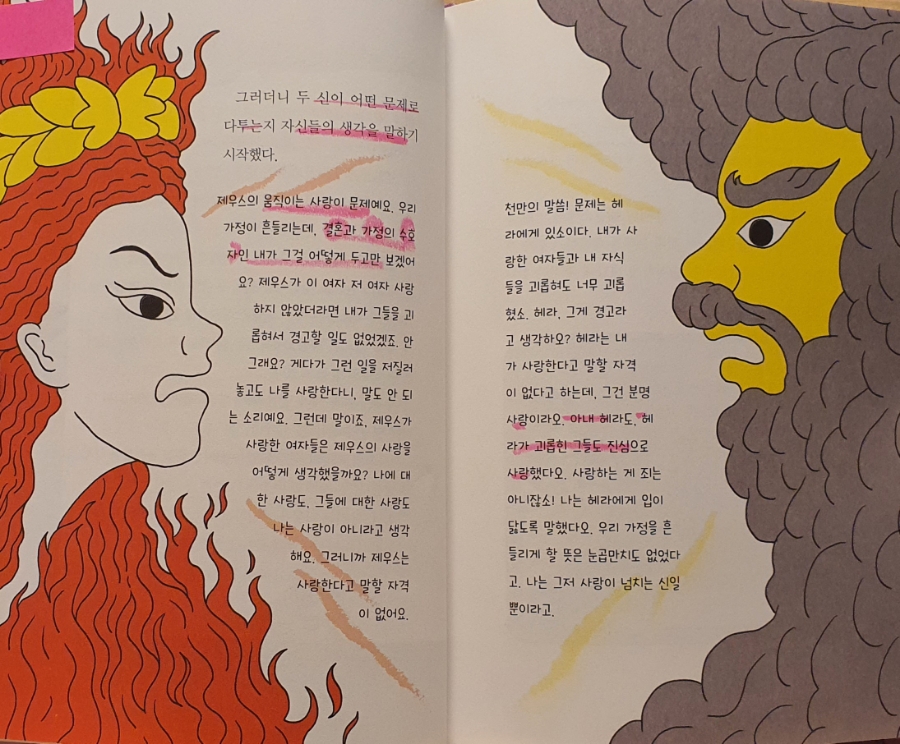 그러더니 두 신이 어떤 문제로
다투는지 자신들의 생각을 말하기
시작했다.
제우스의 움직이는 사랑이 문제예요. 우리
가정이 흔들리는데, 결혼과 가정의 수호
자인 내가 그걸 어떻게 두고만 보겠어
요? 제우스가 이 여자 저 여자 사랑
하지 않았더라면 내가 그들을 괴
롭혀서 경고할 일도 없었겠죠. 안
그래요? 게다가 그런 일을 저질러
놓고도 나를 사랑한다니, 말도 안 되
는 소리예요. 그런데 말이죠. 제우스가
사랑한 여자들은 제우스의 사랑을
어떻게 생각했을까요? 나에 대
한 사랑도, 그들에 대한 사랑도
나는 사랑이 아니라고 생각
해요. 그러니까 제우스는
사랑한다고 말할 자격
이 없어요.
천만의 말씀! 문제는 헤
라에게 있소이다. 내가 사
랑한 여자들과 내 자식
들을 괴롭혀도 너무 괴롭
혔소. 헤라, 그게 경고라
고 생각하오? 헤라는 내
가 사랑한다고 말할 자격
이 없다고 하는데, 그건 분명
사랑이라오. 아내 헤라도, 헤
라가 괴롭힌 그들도 진심으로
사랑했다오. 사랑하는 게 죄는
아니잖소! 나는 헤라에게 입이
닳도록 말했다오. 우리 가정을 흔
들리게 할 뜻은 눈곱만치도 없었다
고. 나는 그저 사랑이 넘치는 신일
뿐이라고.